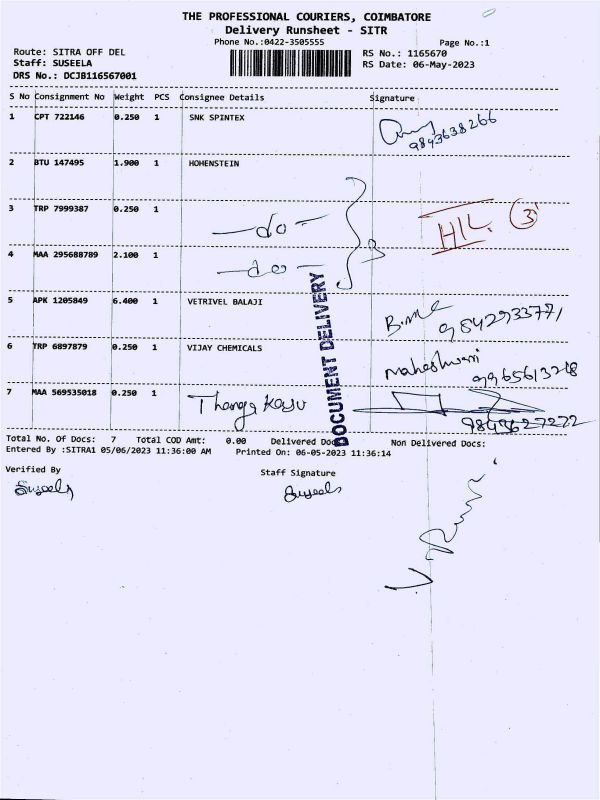 THE PROFESSIONAL COURIERS, COIMBATORE
Delivery Runsheet - SITR
Phone No.:0422-3505555 Page No.:1
Route: SITRA OFF DEL RS No.: 1165670
Staff: SUSEELA RS Date: 06-May-2023
DRS No.: DCJB116567001
S No Consignment No Weight PCS Consignee Details Signature
1 CPT 722146 0.250 1 SNK SPINTEX 9843638266
2 BTU 147495 1.900 1 HOHENSTEIN
3 TRP 7999387 0.250 1 —do— H/L. 3
4 MAA 295688789 2.100 1 —do— 3
5 APK 1205849 6.400 1 VETRIVEL BALAJI 9842933771
6 TRP 6897879 0.250 1 VIJAY CHEMICALS Maheshwari
7 MAA 569535018 0.250 1 Thanga Kasu
DOCUMENT DELIVERY
Total No. Of Docs: 7 Total COD Amt: 0.00 Delivered Docs Non Delivered Docs:
Entered By :SITRA1 05/06/2023 11:36:00 AM Printed On: 06-05-2023 11:36:14
Verified By Staff Signature
Suseela Suseela